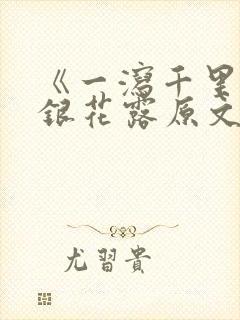 《一瀉千里
銀花露原文
尤習貴